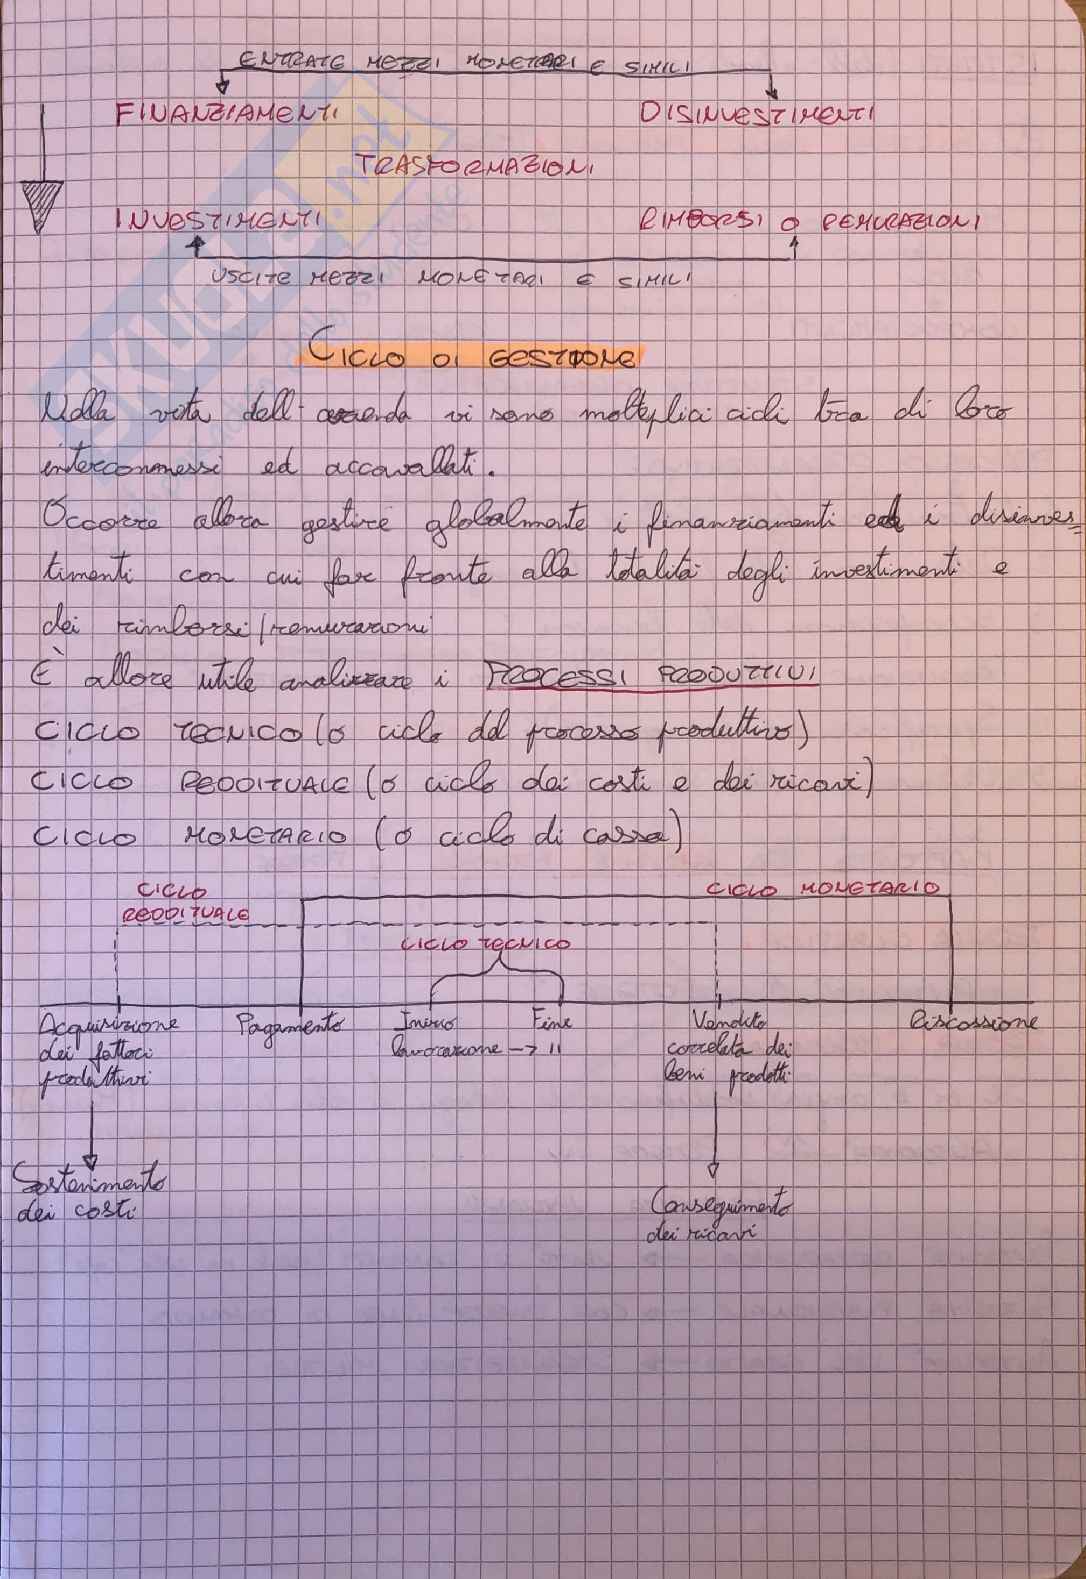 ENTRATE MEZZI MONETARI E SIMILI
FINANZIAMENTI DISINVESTIMENTI
TRASFORMAZIONI
INVESTIMENTI RIMBORSI O REMURAZIONI
USCITE MEZZI MONETARI E SIMILI
CICLO DI GESTIONE
Nella vita dell'azienda vi sono molteplici cicli tra di loro
interconnessi ed accavallati.
Occorre allora gestire globalmente i finanziamenti ed i disinves=
timenti con cui far fronte alla totalità degli investimenti e
dei rimborsi/remurazioni
È allora utile analizzare i PROCESSI PRODUTTIVI
CICLO TECNICO (o ciclo del processo produttivo)
CICLO REDDITUALE (o ciclo dei costi e dei ricavi)
CICLO MONETARIO (o ciclo di cassa)
CICLO CICLO MONETARIO
REDDITUALE
CICLO TECNICO
Acquisizione Pagamento Inizio Fine Vendita Riscossione
dei fattori lavorazione → " correlata dei
produttivi beni prodotti
Sostenimento Conseguimento
dei costi dei ricavi
SKUOLA.net